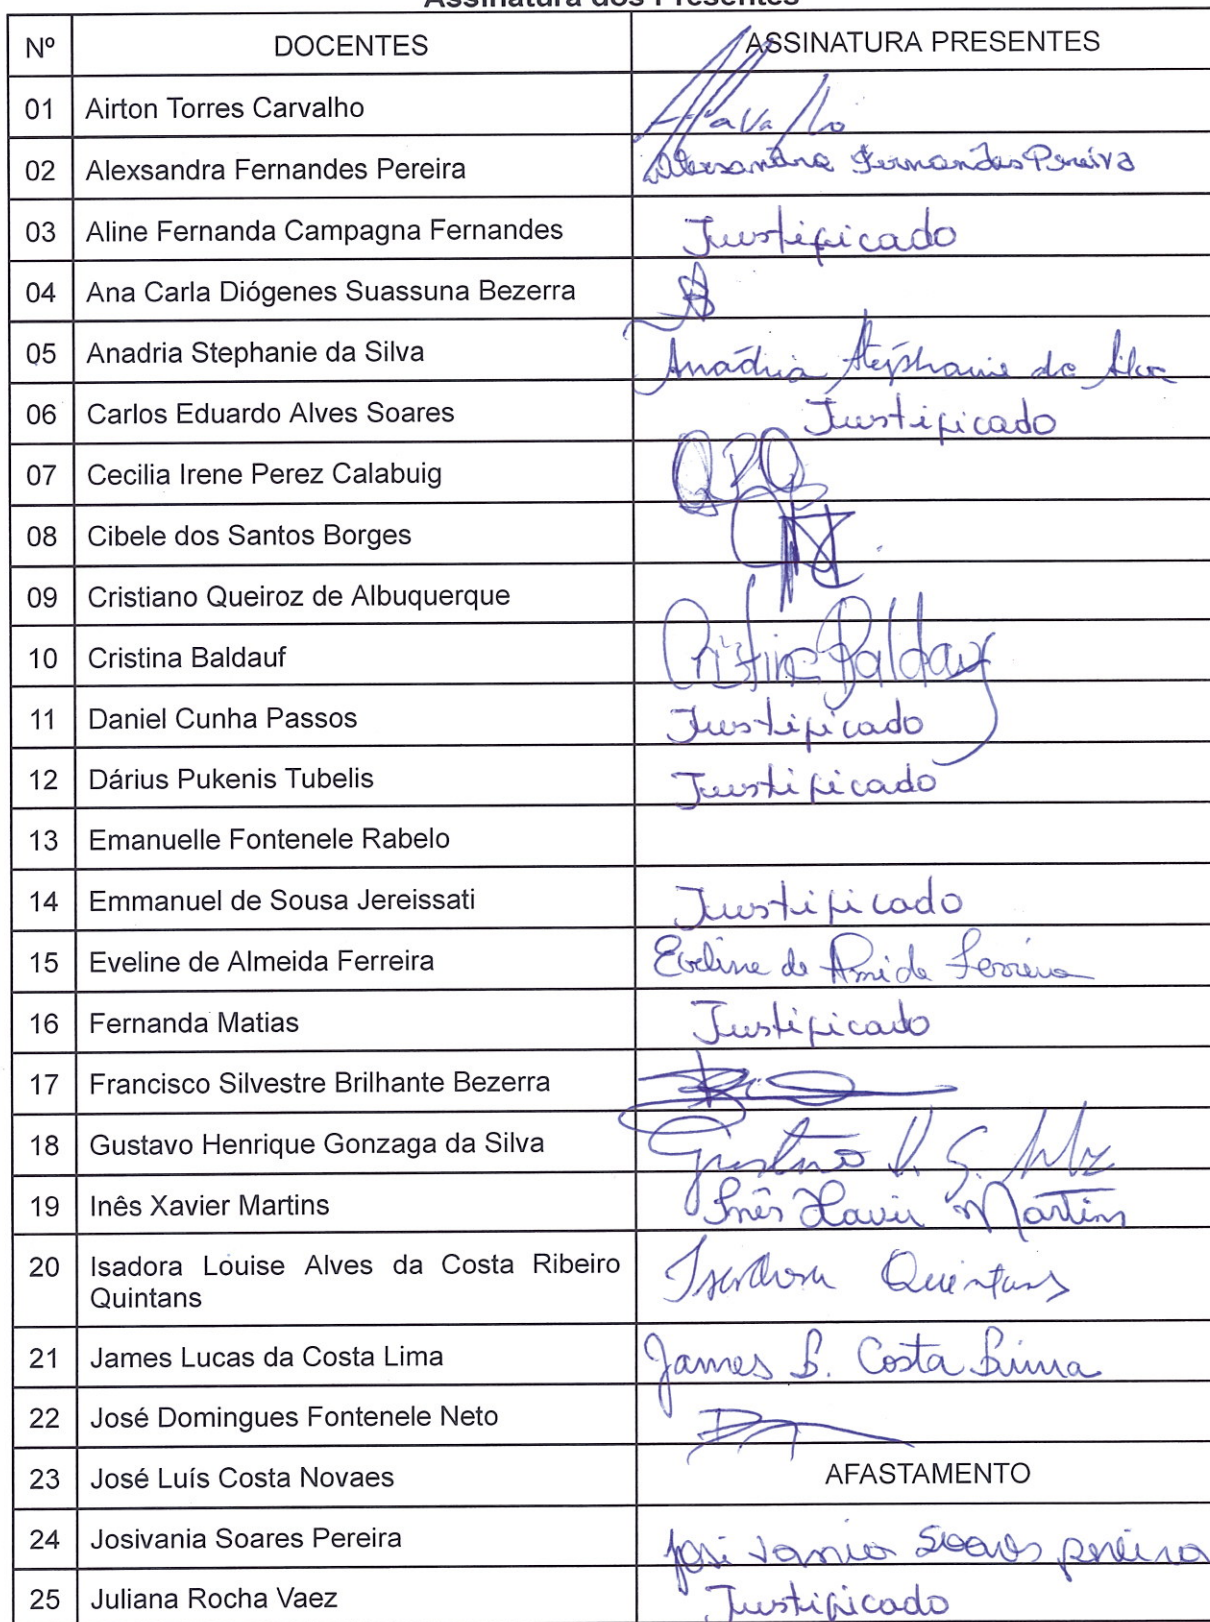 Assinatura dos Presentes
Nº DOCENTES ASSINATURA PRESENTES
01 Airton Torres Carvalho
02 Alexsandra Fernandes Pereira Alexsandra Fernandes Pereira
03 Aline Fernanda Campagna Fernandes Justificado
04 Ana Carla Diógenes Suassuna Bezerra
05 Anadria Stephanie da Silva Anádria Stephanie da Silva
06 Carlos Eduardo Alves Soares Justificado
07 Cecilia Irene Perez Calabuig
08 Cibele dos Santos Borges
09 Cristiano Queiroz de Albuquerque
10 Cristina Baldauf Cristina Baldauf
11 Daniel Cunha Passos Justificado
12 Dárius Pukenis Tubelis Justificado
13 Emanuelle Fontenele Rabelo
14 Emmanuel de Sousa Jereissati Justificado
15 Eveline de Almeida Ferreira Eveline de Almeida Ferreira
16 Fernanda Matias Justificado
17 Francisco Silvestre Brilhante Bezerra
18 Gustavo Henrique Gonzaga da Silva Gustavo H. G. Silva
19 Inês Xavier Martins Inês Xavier Martins
20 Isadora Louise Alves da Costa Ribeiro Isadora Quintans
Quintans
21 James Lucas da Costa Lima James L. Costa Lima
22 José Domingues Fontenele Neto
23 José Luís Costa Novaes AFASTAMENTO
24 Josivania Soares Pereira Josivania Soares Pereira
25 Juliana Rocha Vaez Justificado